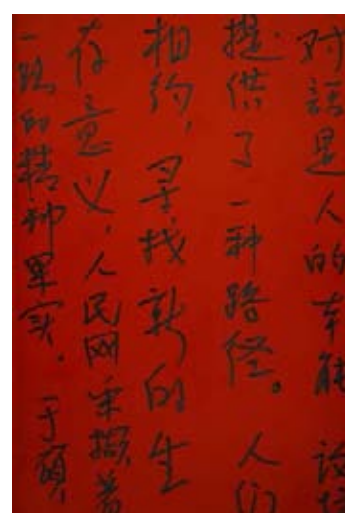 对話是人的本能 论坛
提供了一种路径。人们
相约，寻找新的生
存意义，人民网采撷着
一路的精神果实。于硕